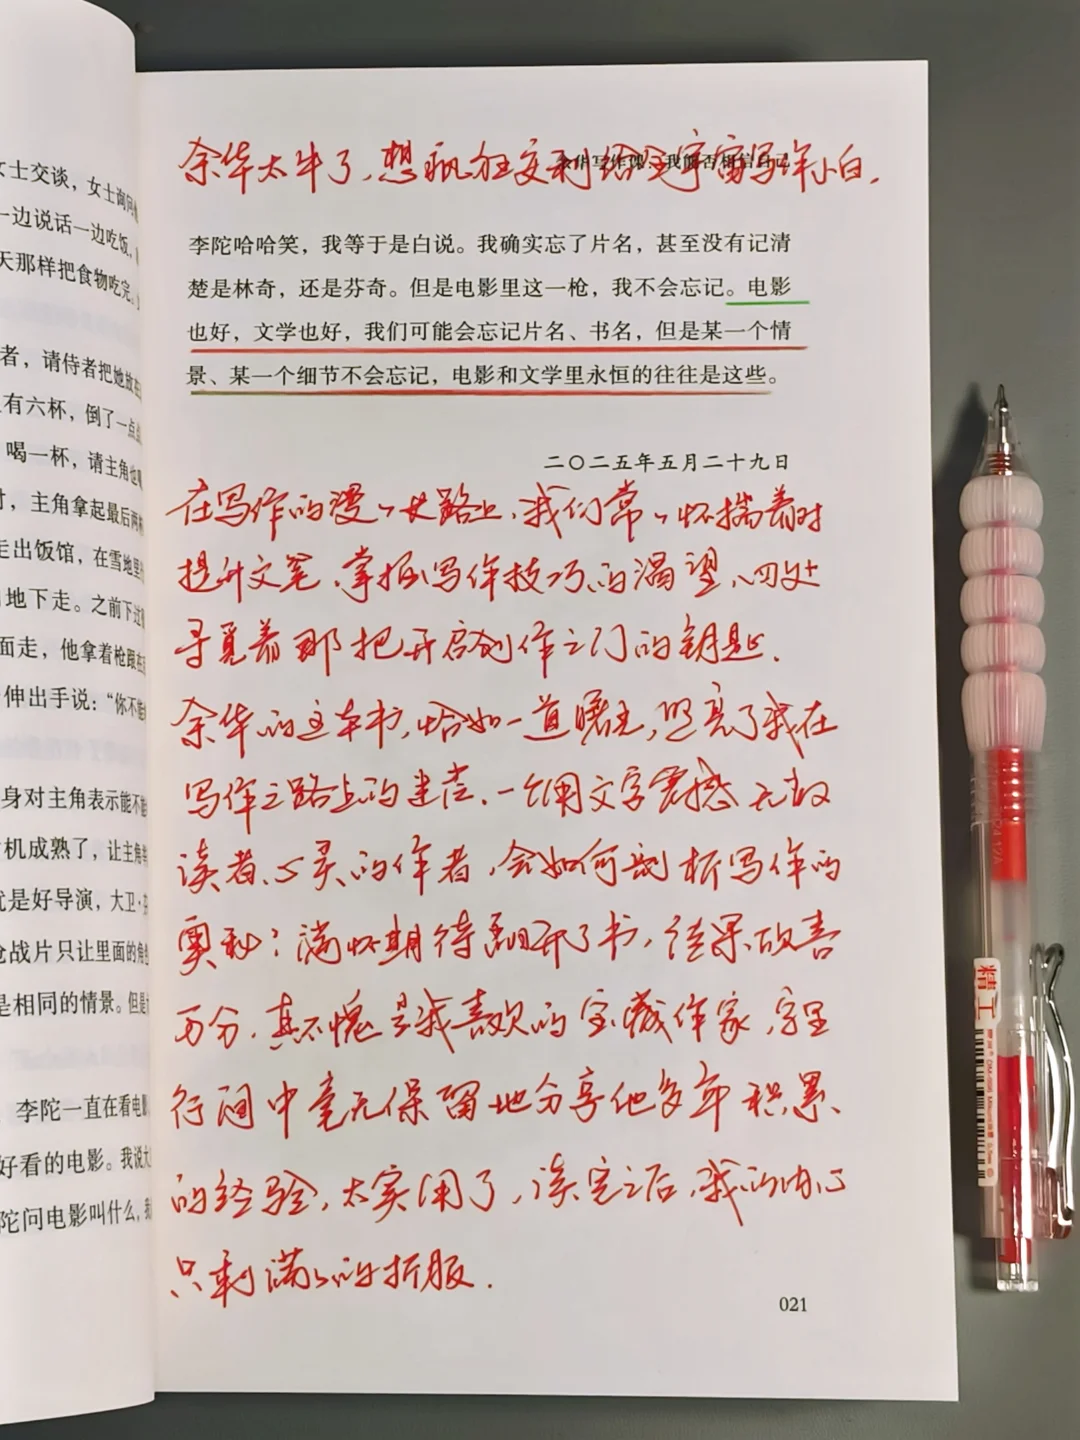 女士交谈，女士询问
一边说话一边吃饭，
天那样把食物吃完。
者，请侍者把她放在
有六杯，倒了一点
喝一杯，请主角也
时，主角拿起最后两
走出饭馆，在雪地里
地下走。之前下过
面走，他拿着枪跟在
伸出手说：“你不能
身对主角表示能不能
机成熟了，让主角
就是好导演，大卫·
枪战片只让里面的角色
是相同的情景。但是
李陀一直在看电影
好看的电影。我说大
陀问电影叫什么，我
余华写作课：我能否相信自己
余华太牛了，想疯狂安利给全宇宙写作小白。
李陀哈哈笑，我等于是白说。我确实忘了片名，甚至没有记清
楚是林奇，还是芬奇。但是电影里这一枪，我不会忘记。电影
也好，文学也好，我们可能会忘记片名、书名，但是某一个情
景、某一个细节不会忘记，电影和文学里永恒的往往是这些。
二〇二五年五月二十九日
在写作的漫漫长路上，我们常常怀揣着对
提升文笔、掌握写作技巧的渴望，四处
寻觅着那把开启创作之门的钥匙。
余华的这本书，恰如一道曙光，照亮了我在
写作之路上的迷茫。一个用文字震撼无数
读者心灵的作者，会如何剖析写作的
奥秘？满怀期待翻开了书，结果故喜
万分，真不愧是我喜欢的宝藏作家，字里
行间中毫无保留地分享他多年积累
的经验，太实用了，读完之后，我的内心
只剩满满的折服。
021
精工